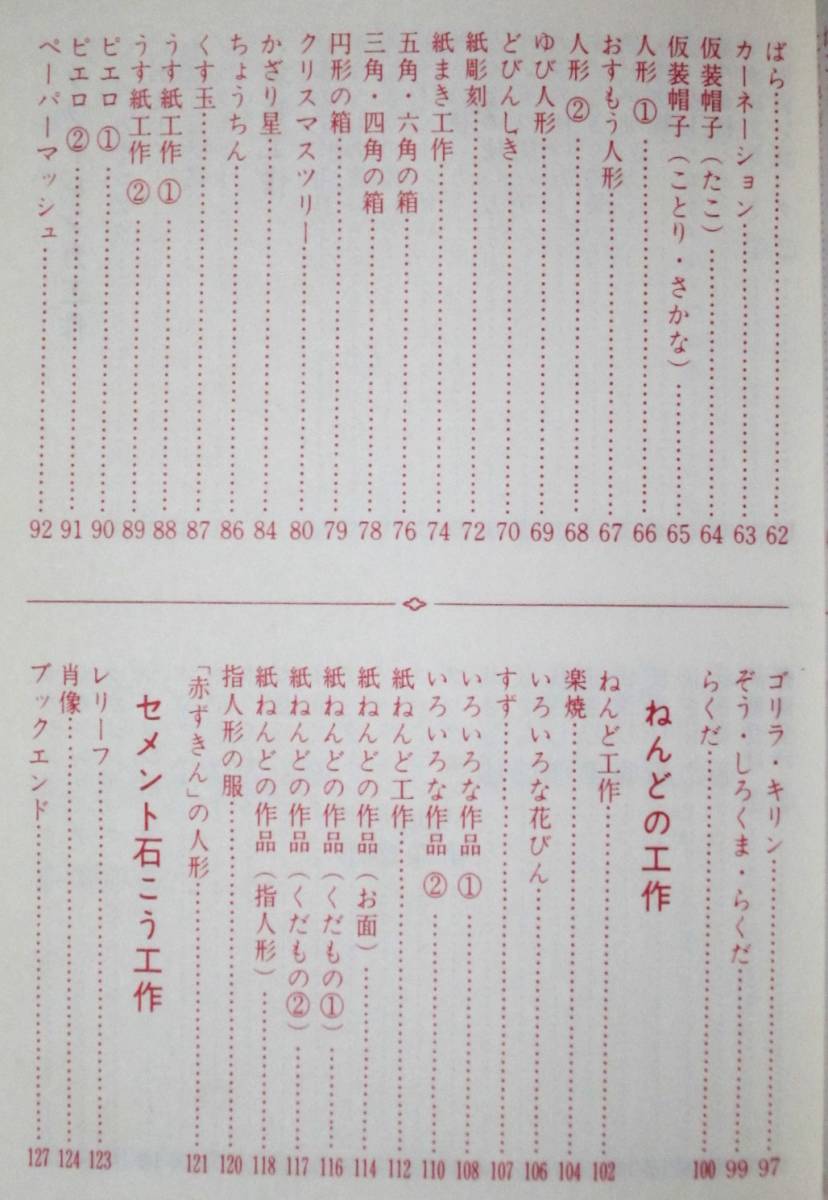 ばら……62
カーネーション……63
仮装帽子（たこ）……64
仮装帽子（ことり・さかな）……65
人形①……66
おすもう人形……67
人形②……68
ゆび人形……69
どびんしき……70
紙彫刻……72
紙まき工作……74
五角・六角の箱……76
三角・四角の箱……78
円形の箱……79
クリスマスツリー……80
かざり星……84
ちょうちん……86
くす玉……87
うす紙工作①……88
うす紙工作②……89
ピエロ①……90
ピエロ②……91
ペーパーマッシュ……92
ゴリラ・キリン……97
ぞう・しろくま・らくだ……99
らくだ……100
ねんどの工作
ねんど工作……102
楽焼……104
いろいろな花びん……106
すず……107
いろいろな作品①……108
いろいろな作品②……110
紙ねんど工作……112
紙ねんどの作品（お面）……114
紙ねんどの作品（くだもの①）……116
紙ねんどの作品（くだもの②）……117
紙ねんどの作品（指人形）……118
指人形の服……120
「赤ずきん」の人形……121
セメント石こう工作
レリーフ……123
肖像……124
ブックエンド……127